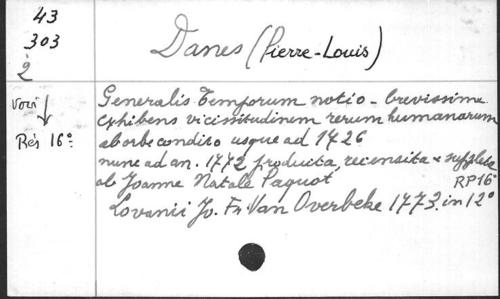 43
303
2
Danes (Pierre-Louis)
voir
Rés 16°
Generalis Temporum notio - brevissime
exhibens vicissitudinem rerum humanarum
ab orbe condito usque ad 1726
nunc ad an. 1772 producta, recensita & suppleta
ab Joanne Natale Paquot
RP16°
Lovanii Jo. Fr Van Overbeke 1773. in 12°